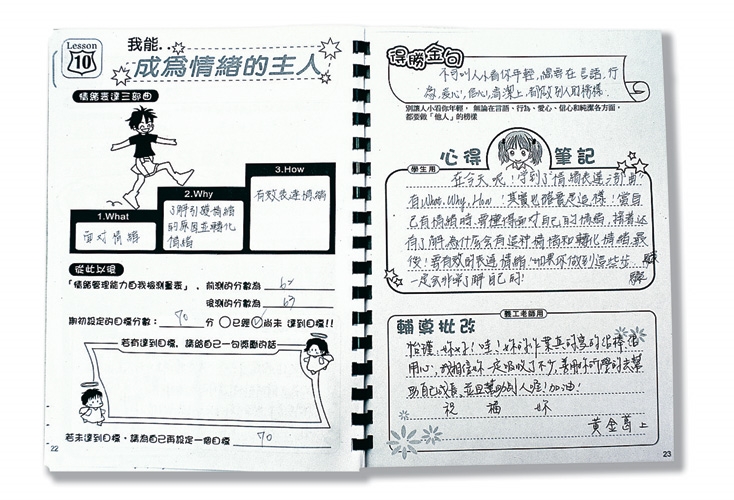 Lesson
10
我能...
成為情緒的主人
情緒表達三部曲
3.How
有效表達情緒
2.Why
了解引發情緒
的原因並轉化
情緒
1.What
面對情緒
從此以後
「情緒管理能力自我檢測量表」, 前測的分數為
後測的分數為 63
期初設定的目標分數: 70 分 ○已經 ○尚未 達到目標!!
若有達到目標,請給自己一句獎勵的話
若未達到目標,請為自己再設定一個目標 70
22
得勝金句
不可叫人小看你年輕,總要在言語,行
為,愛心,信心,清潔上,都做別人的榜樣
別讓人小看你年輕, 無論在言語、行為、愛心、信心和純潔各方面,
都要做「他人」的榜樣
心得筆記
學生用
在今天呢!學到了情緒表達三部曲
有What、Why、How!其實我覺得就是這樣!當自
己有情緒時,要懂得面對自己的情緒,接著還
有了解為什麼會有這種情緒和轉化情緒,最
後!要有效的表達情緒!如果你做到這些步驟
一定會非常了解自己的!
義工老師用
輔導批改
妳好!哇!妳的作業真的寫的很棒
用心,我相信妳一定吸收了不少,
助自己成長,並且幫助別人喔!加油!
祝 福 妳
黃金 上
23